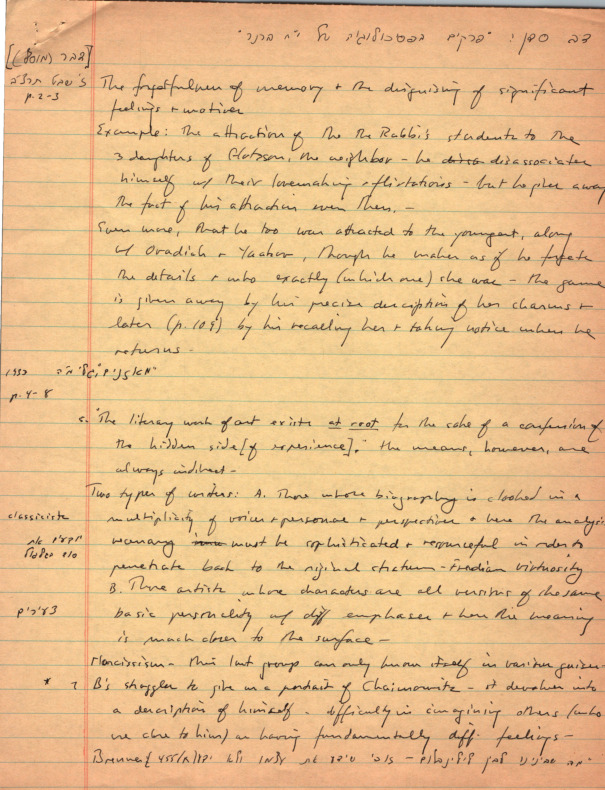 דב סדן: "פרקים בפסיכולוגיה של י"ח ברנר"
[דבר (מוסף)]
ז' שבט תרצ"ב
p. 2-3
The forgetfulness of memory + the disguising of significant
feelings + motives
Example: The attraction of the the Rabbi's students to the
3 daughters of Flatzon, the neighbor – he disassociates
himself w/ their lovemaking + flirtations – but he gives away
the fact of his attraction even then. –
Even more, that he too was attracted to the youngest, along
w/ Ovadiah + Yaakov, though he makes as if he forgets
the details + who exactly (which one) she was – the game
is given away by his precise description of her charms +
later (p. 109) by his recalling her + taking notice when she
returns –
מאזנים 1933
p. 4-8
"The literary work of art exists at root for the sake of a confession of
the hidden side [of experience]." the means, however, are
always indirect –
Two types of writers: A. Those whose biography is cloaked in a
multiplicity of voices + personae + perspectives + here the analysis
classicists
must be sophisticated + resourceful in order to
penetrate back to the original stratum – Freudian virtuosity
B. Those artists whose characters are all versions of the same
basic personality w/ diff emphases + here the meaning
צעירים
is much closer to the surface –
Narcissism – this last group can only know itself in various guises –
* B's struggles to give us a portrait of Chaimowitz – it devolves into
a description of himself – difficulty in imagining others (who
are close to him) as having fundamentally diff. feelings –
Brenner